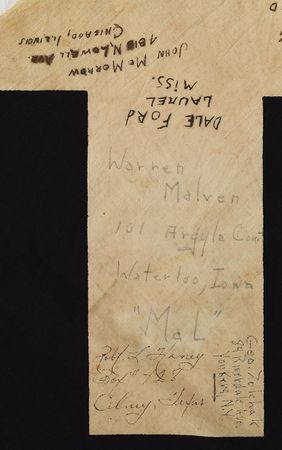 JOHN MCMORROW
4818 N. LOWELL AVE.
CHICAGO, ILLINOIS
DALE FORD
LAUREL
MISS.
Warren
Malven
101 Argyle Court
Waterloo, Iowa
"Mal"
Robt. L. Haney
Box
Olney, Texas
Geo.
84 Riverdale Ave
Yonkers N.Y.